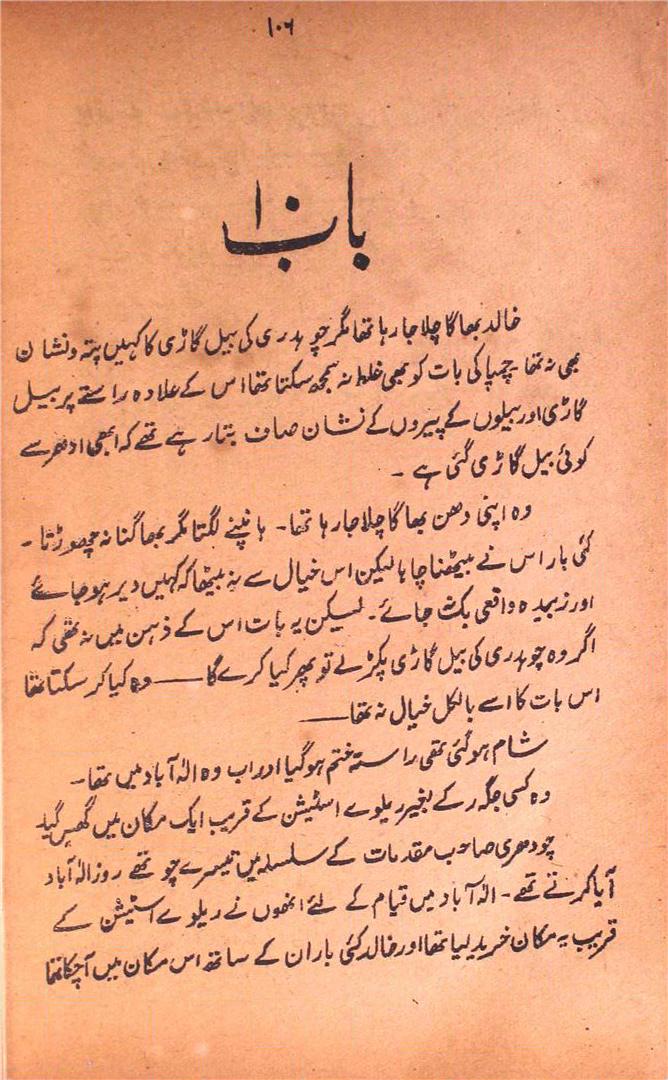 ۱۰۶
باب ۱۰
خالد بھاگا چلا جا رہا تھا مگر چوہدری کی بیل گاڑی کا کہیں پتہ ونشان
بھی نہ تھا۔ چمپا کی بات کو بھی غلط نہ سمجھ سکتا تھا اس کے علاوہ راستے پر بیل
گاڑی اور بیلوں کے پیروں کے نشان صاف بتا رہے تھے کہ ابھی ادھر سے
کوئی بیل گاڑی گئی ہے ۔
وہ اپنی دھن بھاگا چلا جا رہا تھا۔ ہانپنے لگتا مگر بھاگنا نہ چھوڑتا ۔
کئی بار اس نے بیٹھنا چاہا لیکن اس خیال سے نہ بیٹھا کہ کہیں دیر ہو جائے
اور زبیدہ واقعی بک جائے۔ لیکن یہ بات اس کے ذہن میں نہ تھی کہ
اگر وہ چوہدری کی بیل گاڑی پکڑ لے تو پھر کیا کرے گا ـــــ وہ کیا کر سکتا تھا
اس بات کا اسے بالکل خیال نہ تھا ـــــ
شام ہو گئی تھی راستہ ختم ہو گیا اور اب وہ الٰہ آباد میں تھا۔
وہ کسی جگہ رکے بغیر ریلوے اسٹیشن کے قریب ایک مکان میں گھس گیا
چودھری صاحب مقدمات کے سلسلہ میں تیسرے چوتھے روز الٰہ آباد
آیا کرتے تھے ۔ الٰہ آباد میں قیام کے لئے انھوں نے ریلوے اسٹیشن کے
قریب یہ مکان خرید لیا تھا اور خالد کئی بار ان کے ساتھ اس مکان میں آ چکا تھا